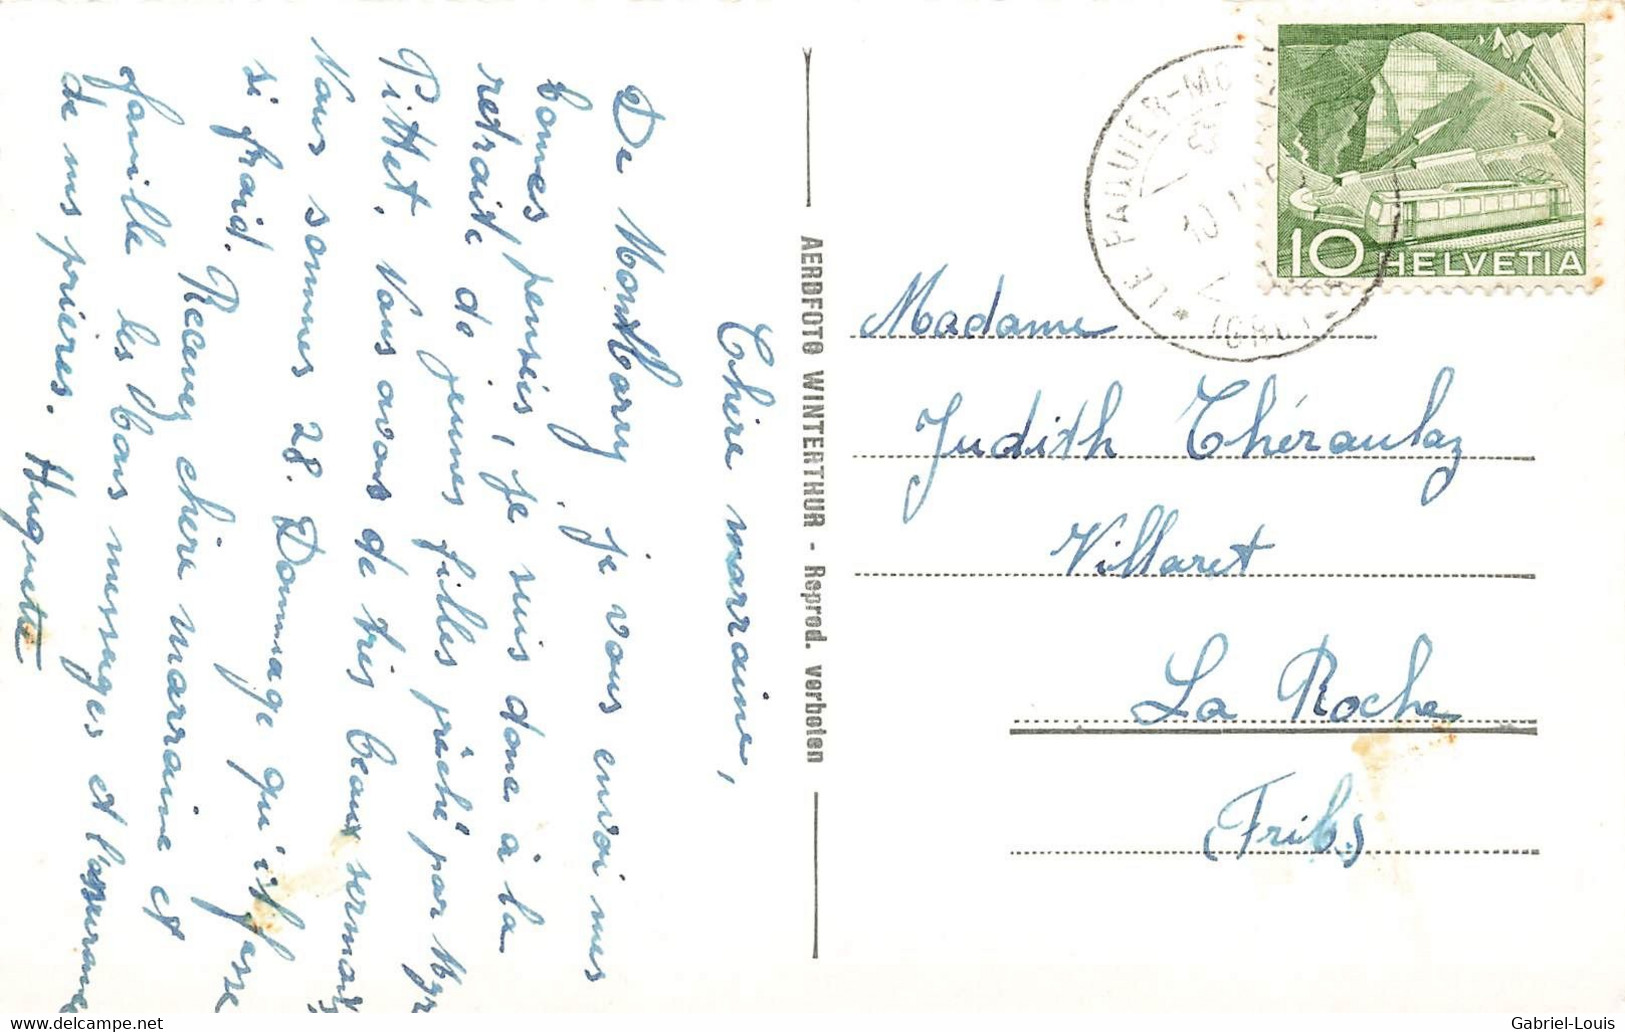 Chère marraine,
De Montbarry je vous envoi mes
bonnes pensées, je suis donc à la
retraite de jeunes filles prêché par Mgr
Pittet. Nous avons de très beaux sermons,
Nous sommes 28. Dommage qu'il fasse
si froid.
Recevez chère marraine et
famille les bons messages et l'assurance
de mes prières. Huguette
AEROFOTO WINTERTHUR - Reprod. verboten
LE PAQUIER-MO
10
(GRUY
10 HELVETIA
Madame
Judith Théraulaz
Villaret
La Roche
(Fribg)
delcampe.net
Gabriel-Louis